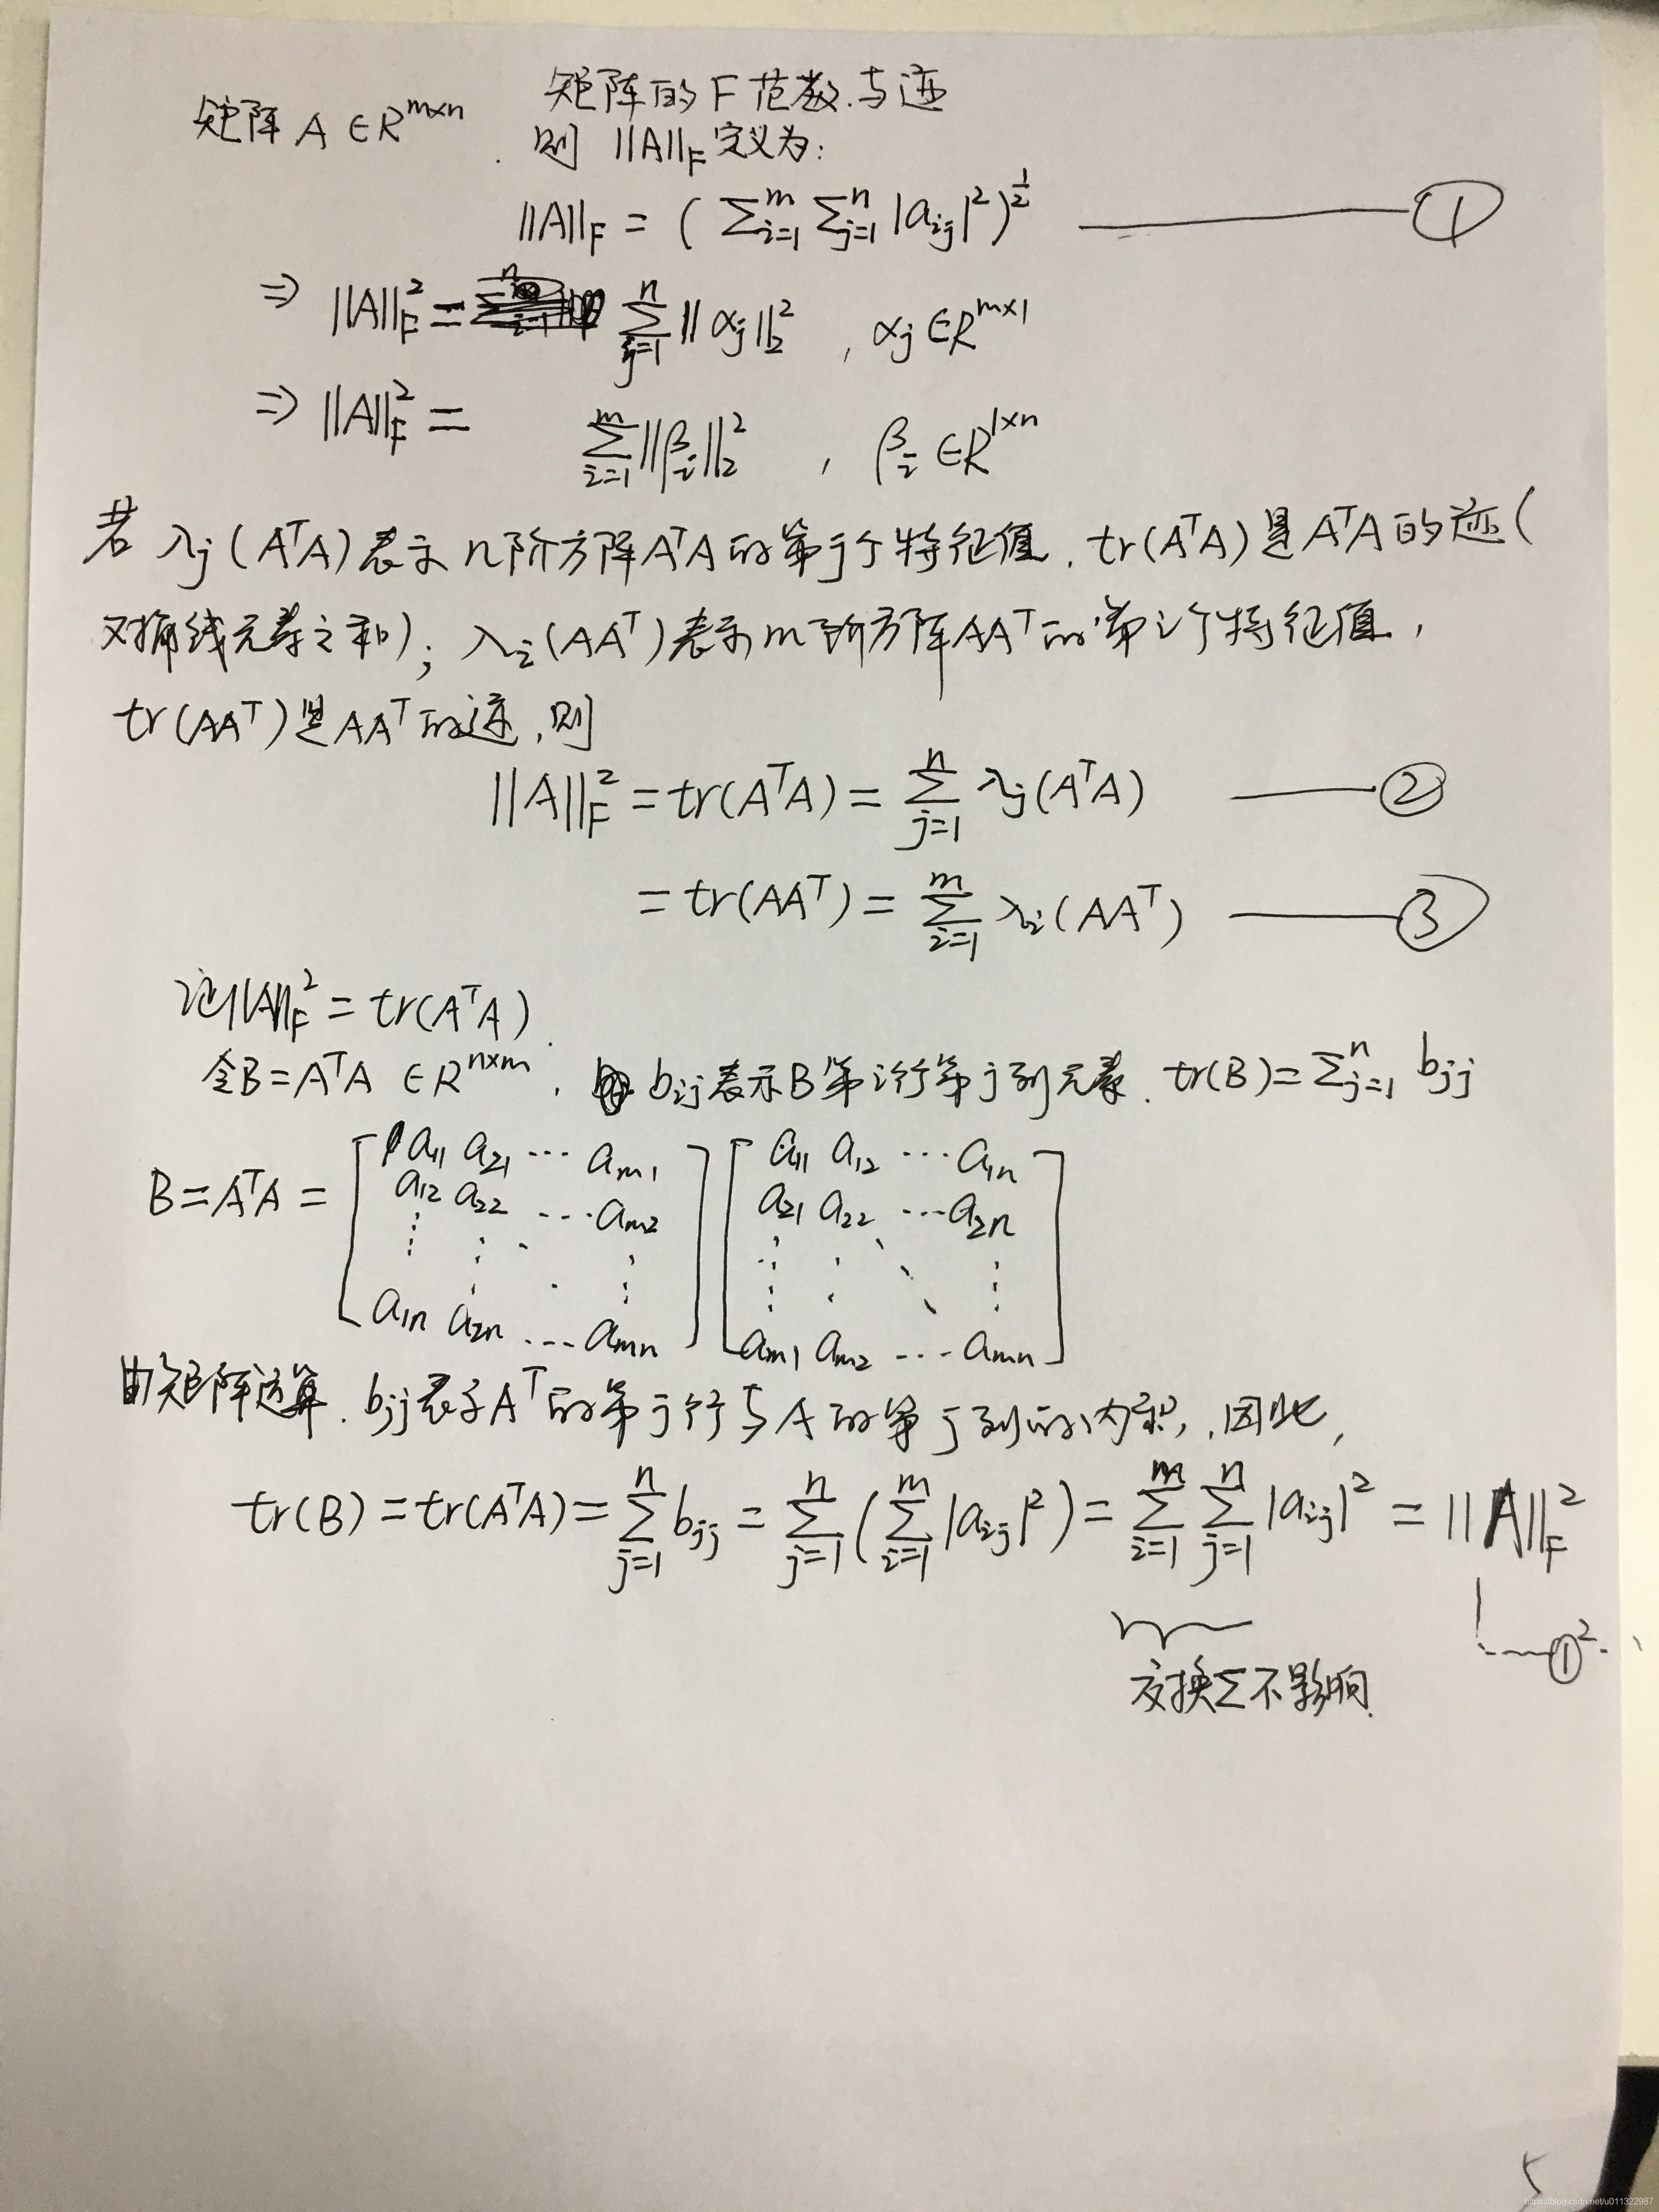 矩阵的F范数与迹
矩阵 A ∈ R^{m×n}. 则 ||A||_F 定义为:
||A||_F = ( ∑_{i=1}^{m} ∑_{j=1}^{n} |a_{ij}|^2 )^{1/2} —— ①
⇒ ||A||_F^2 = ∑_{j=1}^{n} ||α_j||_2^2 , α_j ∈ R^{m×1}
⇒ ||A||_F^2 = ∑_{i=1}^{m} ||β_i||_2^2 , β_i ∈ R^{1×n}
若 λ_j(A^T A) 表示 n阶方阵A^T A的第j个特征值. tr(A^T A)是A^T A的迹(
对角线元素之和); λ_i(AA^T)表示m阶方阵AA^T的第i个特征值,
tr(AA^T)是AA^T的迹,则
||A||_F^2 = tr(A^T A) = ∑_{j=1}^{n} λ_j(A^T A) —— ②
= tr(AA^T) = ∑_{i=1}^{m} λ_i(AA^T) —— ③
证||A||_F^2 = tr(A^T A).
令B = A^T A ∈ R^{n×m}, b_{ij}表示B第i行第j列元素. tr(B) = ∑_{j=1}^{n} b_{jj}
B = A^T A = [ a_{11} a_{21} ⋯ a_{m1} ] [ a_{11} a_{12} ⋯ a_{1n} ]
a_{12} a_{22} ⋯ a_{m2} a_{21} a_{22} ⋯ a_{2n}
⋮ ⋮ ⋱ ⋮ ⋮ ⋮ ⋱ ⋮
a_{1n} a_{2n} ⋯ a_{mn} a_{m1} a_{m2} ⋯ a_{mn}
由矩阵运算. b_{jj}表示A^T的第j行与A的第j列的内积,.因此,
tr(B) = tr(A^T A) = ∑_{j=1}^{n} b_{jj} = ∑_{j=1}^{n} (∑_{i=1}^{m} |a_{ij}|^2) = ∑_{i=1}^{m} ∑_{j=1}^{n} |a_{ij}|^2 = ||A||_F^2
①^2.
交换∑不影响.
5
https://blog.csdn.net/u011322987